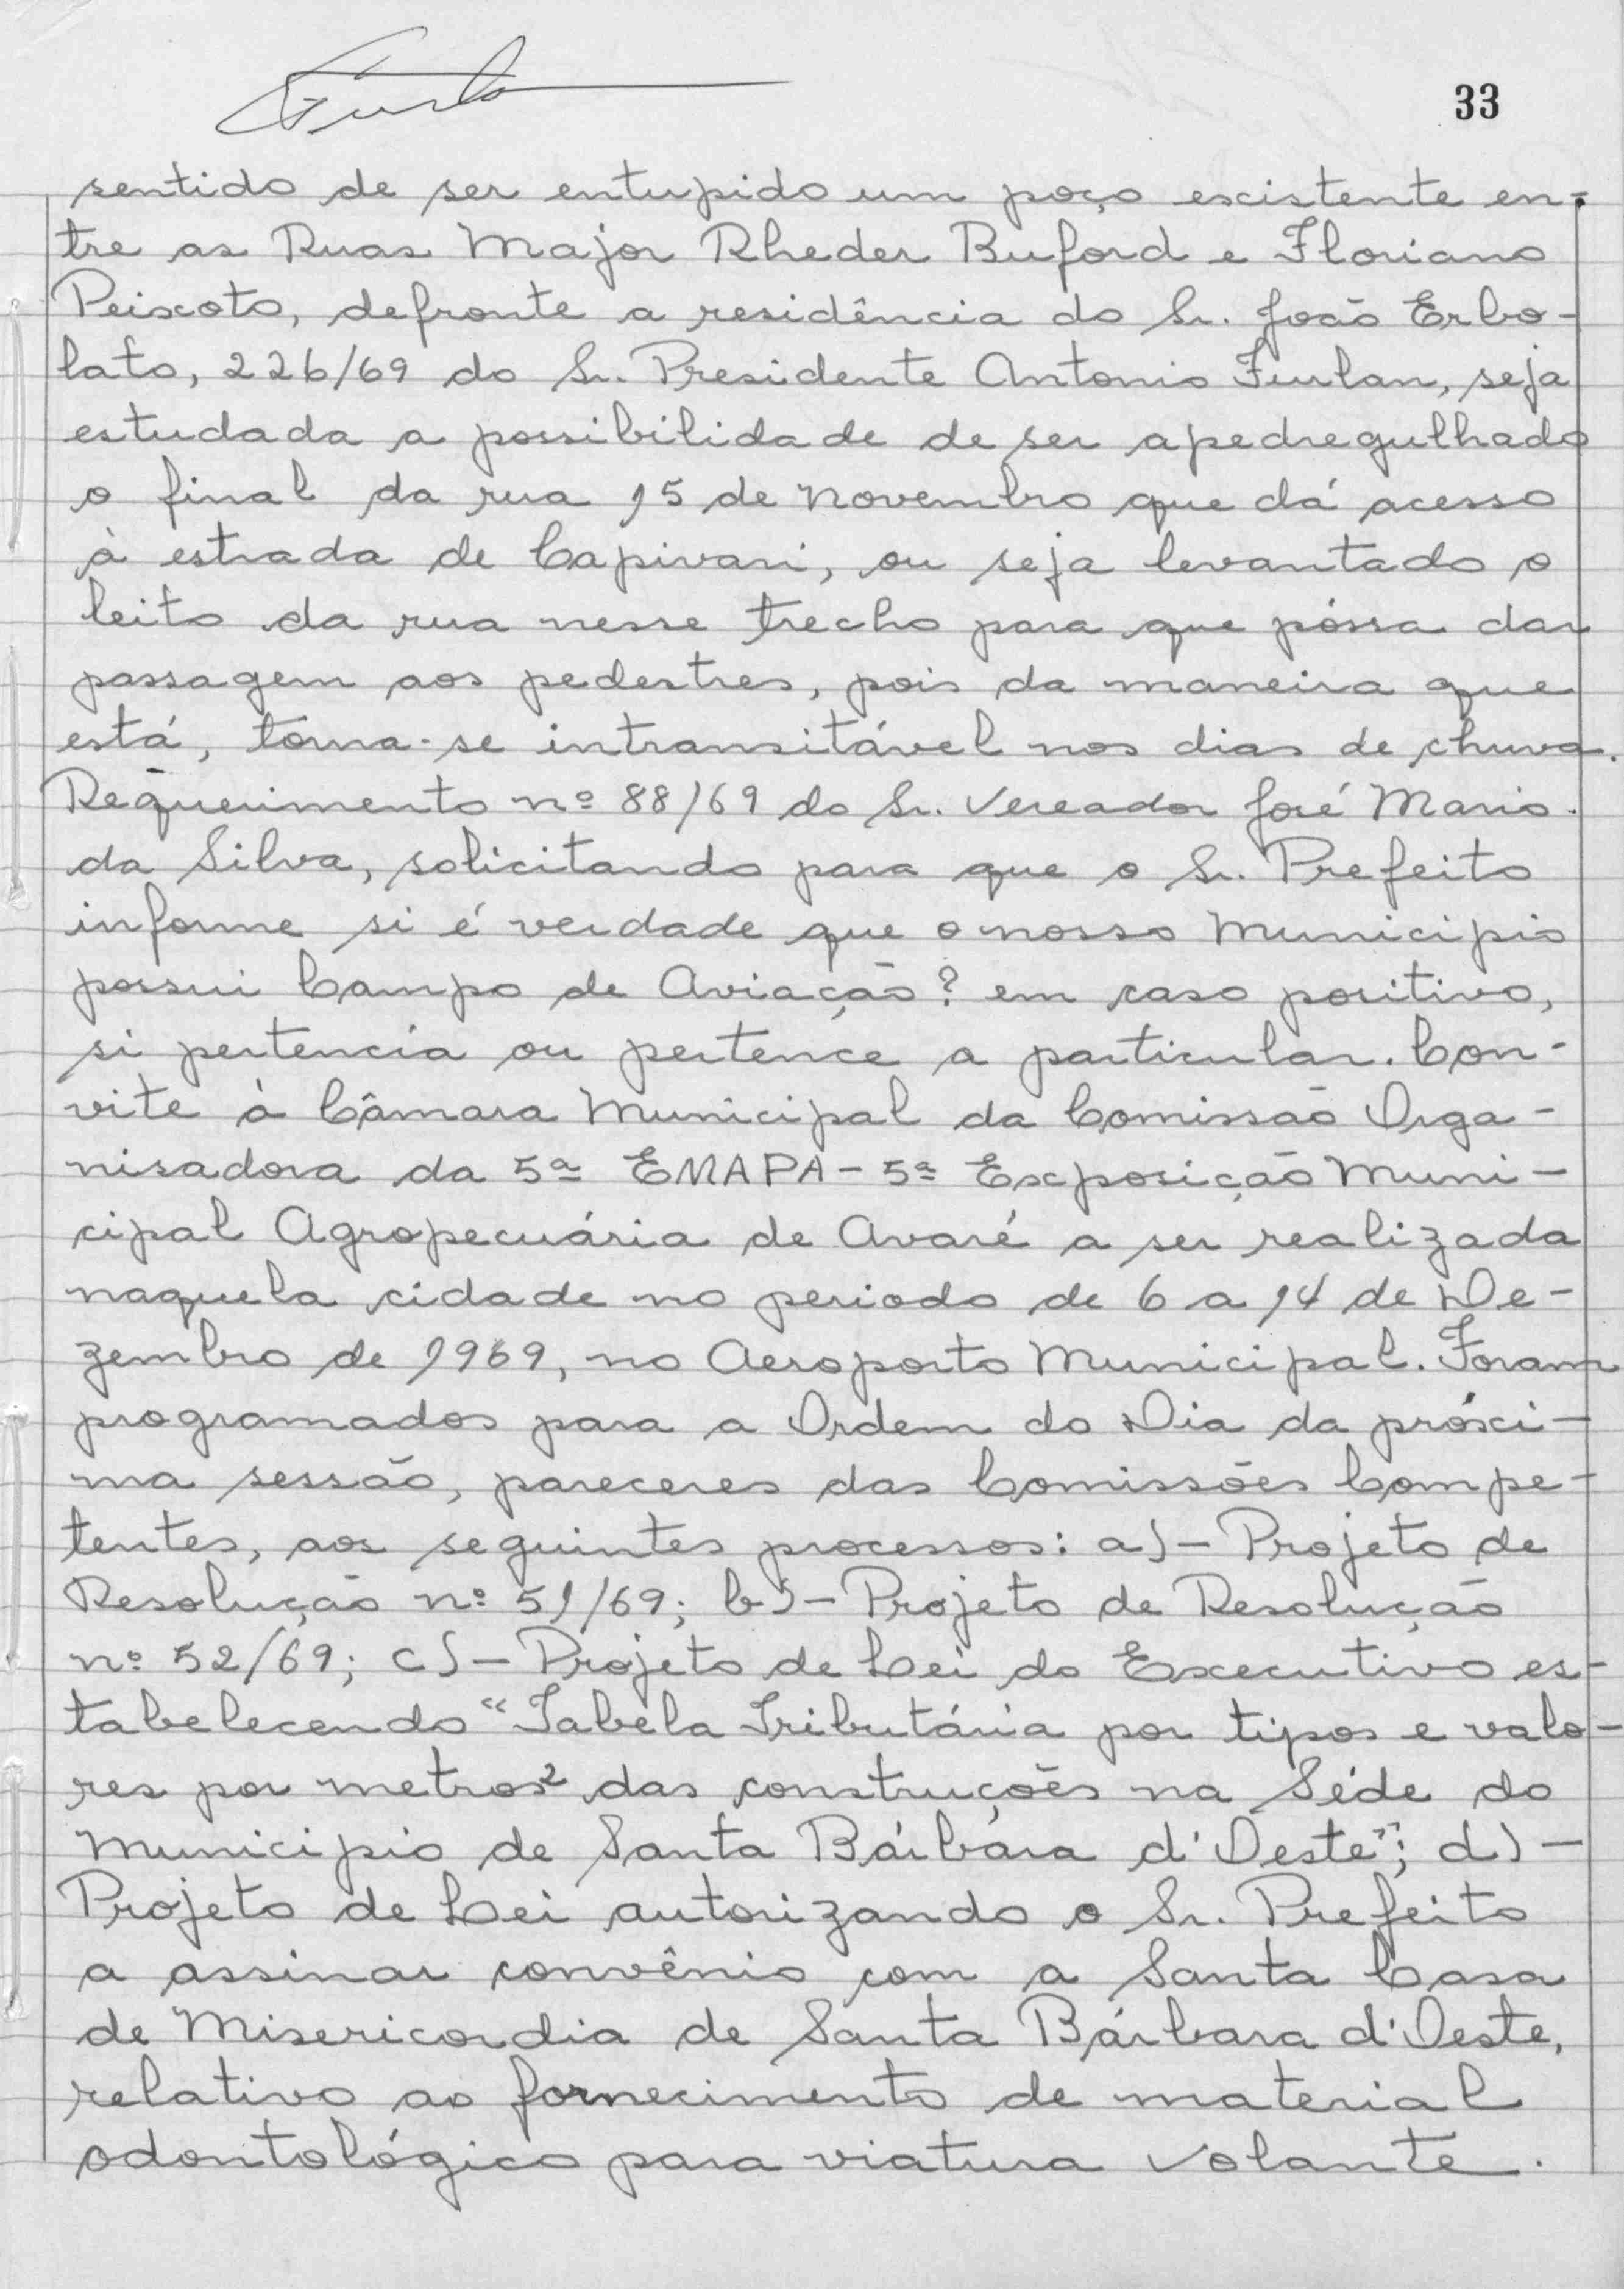 33
sentido de ser entupido um poço existente en-
tre as Ruas Major Rheder Buford e Floriano
Peixoto, defronte a residência do Sr. João Erbo-
lato, 226/69 do Sr. Presidente Antonio Furlan, seja
estudada a possibilidade de ser apedregulhado
o final da rua 15 de Novembro que dá acesso
à estrada de Capivari, ou seja levantado o
leito da rua nesse trecho para que póssa dar
passagem aos pedestres, pois da maneira que
está, torna-se intransitável nos dias de chuva.
Requerimento nº 88/69 do Sr. Vereador José Mario
da Silva, solicitando para que o Sr. Prefeito
informe si é verdade que o nosso Municipio
possui Campo de Aviação? em caso positivo,
si pertencia ou pertence a particular. Con-
vite à Câmara Municipal da Comissão Orga-
nisadora da 5ª EMAPA - 5ª Exposição Muni-
cipal Agropecuária de Avaré a ser realizada
naquela cidade no periodo de 6 a 14 de De-
zembro de 1969, no Aeroporto Municipal. Foram
programados para a Ordem do Dia da próxi-
ma sessão, pareceres das Comissões Compe-
tentes, aos seguintes processos: a) - Projeto de
Resolução nº 51/69; b) - Projeto de Resolução
nº 52/69; c) - Projeto de Lei do Executivo es-
tabelecendo "Tabela Tributária por tipos e valo-
res por metros² das construções na Séde do
Municipio de Santa Bárbára d'Oeste"; d) -
Projeto de Lei autorizando o Sr. Prefeito
a assinar convênio com a Santa Casa
de Misericordia de Santa Bárbara d'Oeste,
relativo ao fornecimento de material
odontológico para viatura volante.